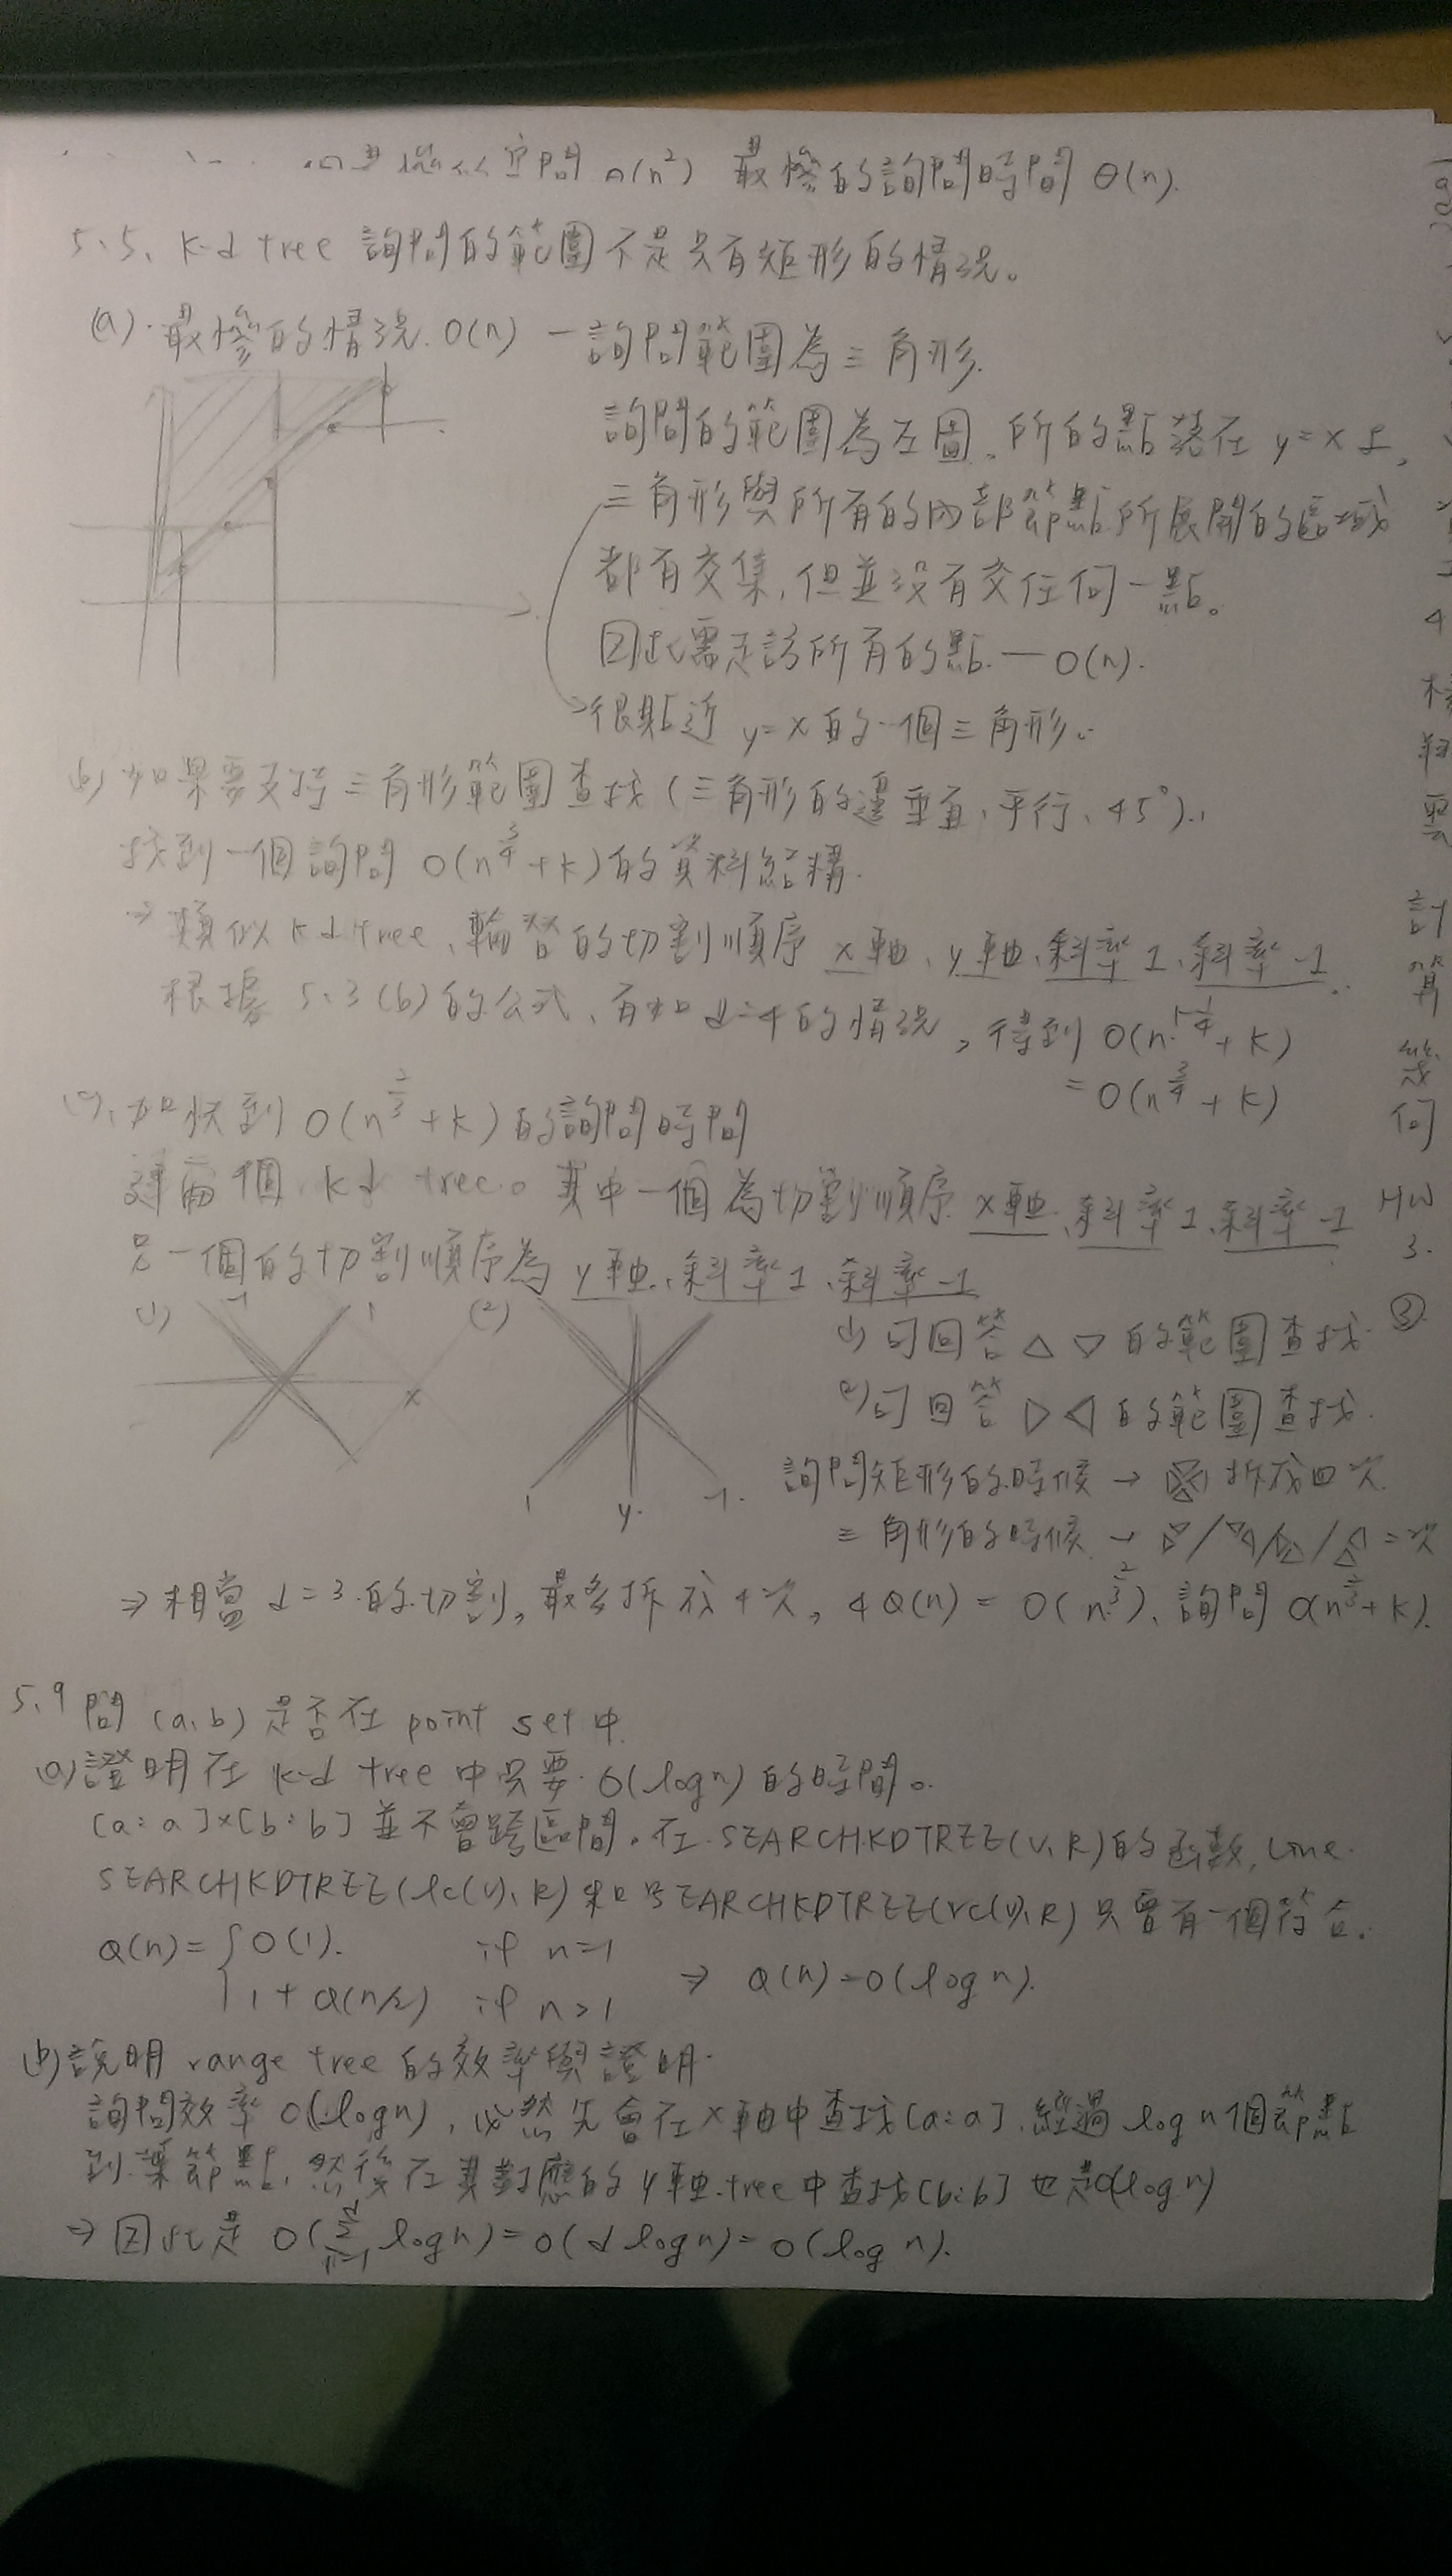 空間 O(n²) 最慘的詢問時間 Θ(n).
5.5、k-d tree 詢問的範圍不是只有矩形的情況。
(a). 最慘的情況. O(n) — 詢問範圍為三角形.
詢問的範圍為左圖。所的點落在 y=x 上,
三角形與所有的內部節點所展開的區域
都有交集,但並沒有交任何一點。
因此需走訪所有的點. — O(n).
→很貼近 y=x 的一個三角形。
(b) 如果要支持三角形範圍查找 (三角形的邊垂直、平行、45°).
找到一個詢問 O(n^{3/4}+k) 的資料結構.
⇒ 類似 kd tree、輪替的切割順序 x軸、y軸、斜率1、斜率-1.
根據 5.3(b) 的公式、有如 d=4 的情況,得到 O(n^{1-1/4}+k)
= O(n^{3/4}+k)
(c)、加快到 O(n^{2/3}+k) 的詢問時間
建兩個 kd tree。其中一個為切割順序 x軸、斜率1、斜率-1
另一個的切割順序為 y軸、斜率1、斜率-1
(1) -1 1 x
(2) 1 y -1
(1) 可回答 △ ▽ 的範圍查找.
(2) 可回答 ▷ ◁ 的範圍查找.
詢問矩形的時候 → 拆成四次
三角形的時候 → / / / = 2次
⇒ 相當 d=3 的切割,最多拆成 4 次, 4Q(n) = O(n^{2/3})、詢問 O(n^{2/3}+k).
5.9 問 (a,b) 是否在 point set 中.
(a) 證明在 k-d tree 中只要 O(log n) 的時間。
[a:a]×[b:b] 並不會跨區間。在 SEARCHKDTREE(v,R) 的函數, Line
SEARCHKDTREE(lc(v), R) 和 SEARCHKDTREE(rc(v), R) 只會有一個符合.
Q(n) = { O(1). if n=1
1 + Q(n/2) if n>1 ⇒ Q(n) = O(log n).
(b) 說明 range tree 的效率與證明.
詢問效率 O(log n),必然先會在 x軸中查找 [a:a]、經過 log n 個節點
到葉節點,然後在其對應的 y軸 tree 中查找 [b:b] 也是O(log n)
⇒ 因此是 O(∑_{i=1}^{d} log n) = O(d log n) = O(log n).
計算幾何 HW 3.
③